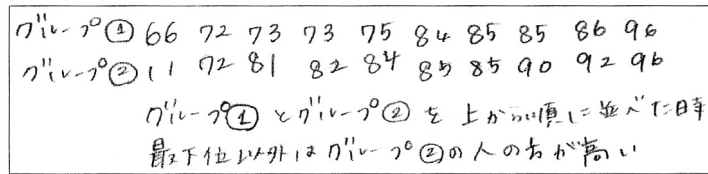 グループ① 66 72 73 73 75 84 85 85 86 96
グループ② 11 72 81 82 84 85 85 90 92 96
グループ①とグループ②を上から順に並べた時
最下位以外はグループ②の人の方が高い